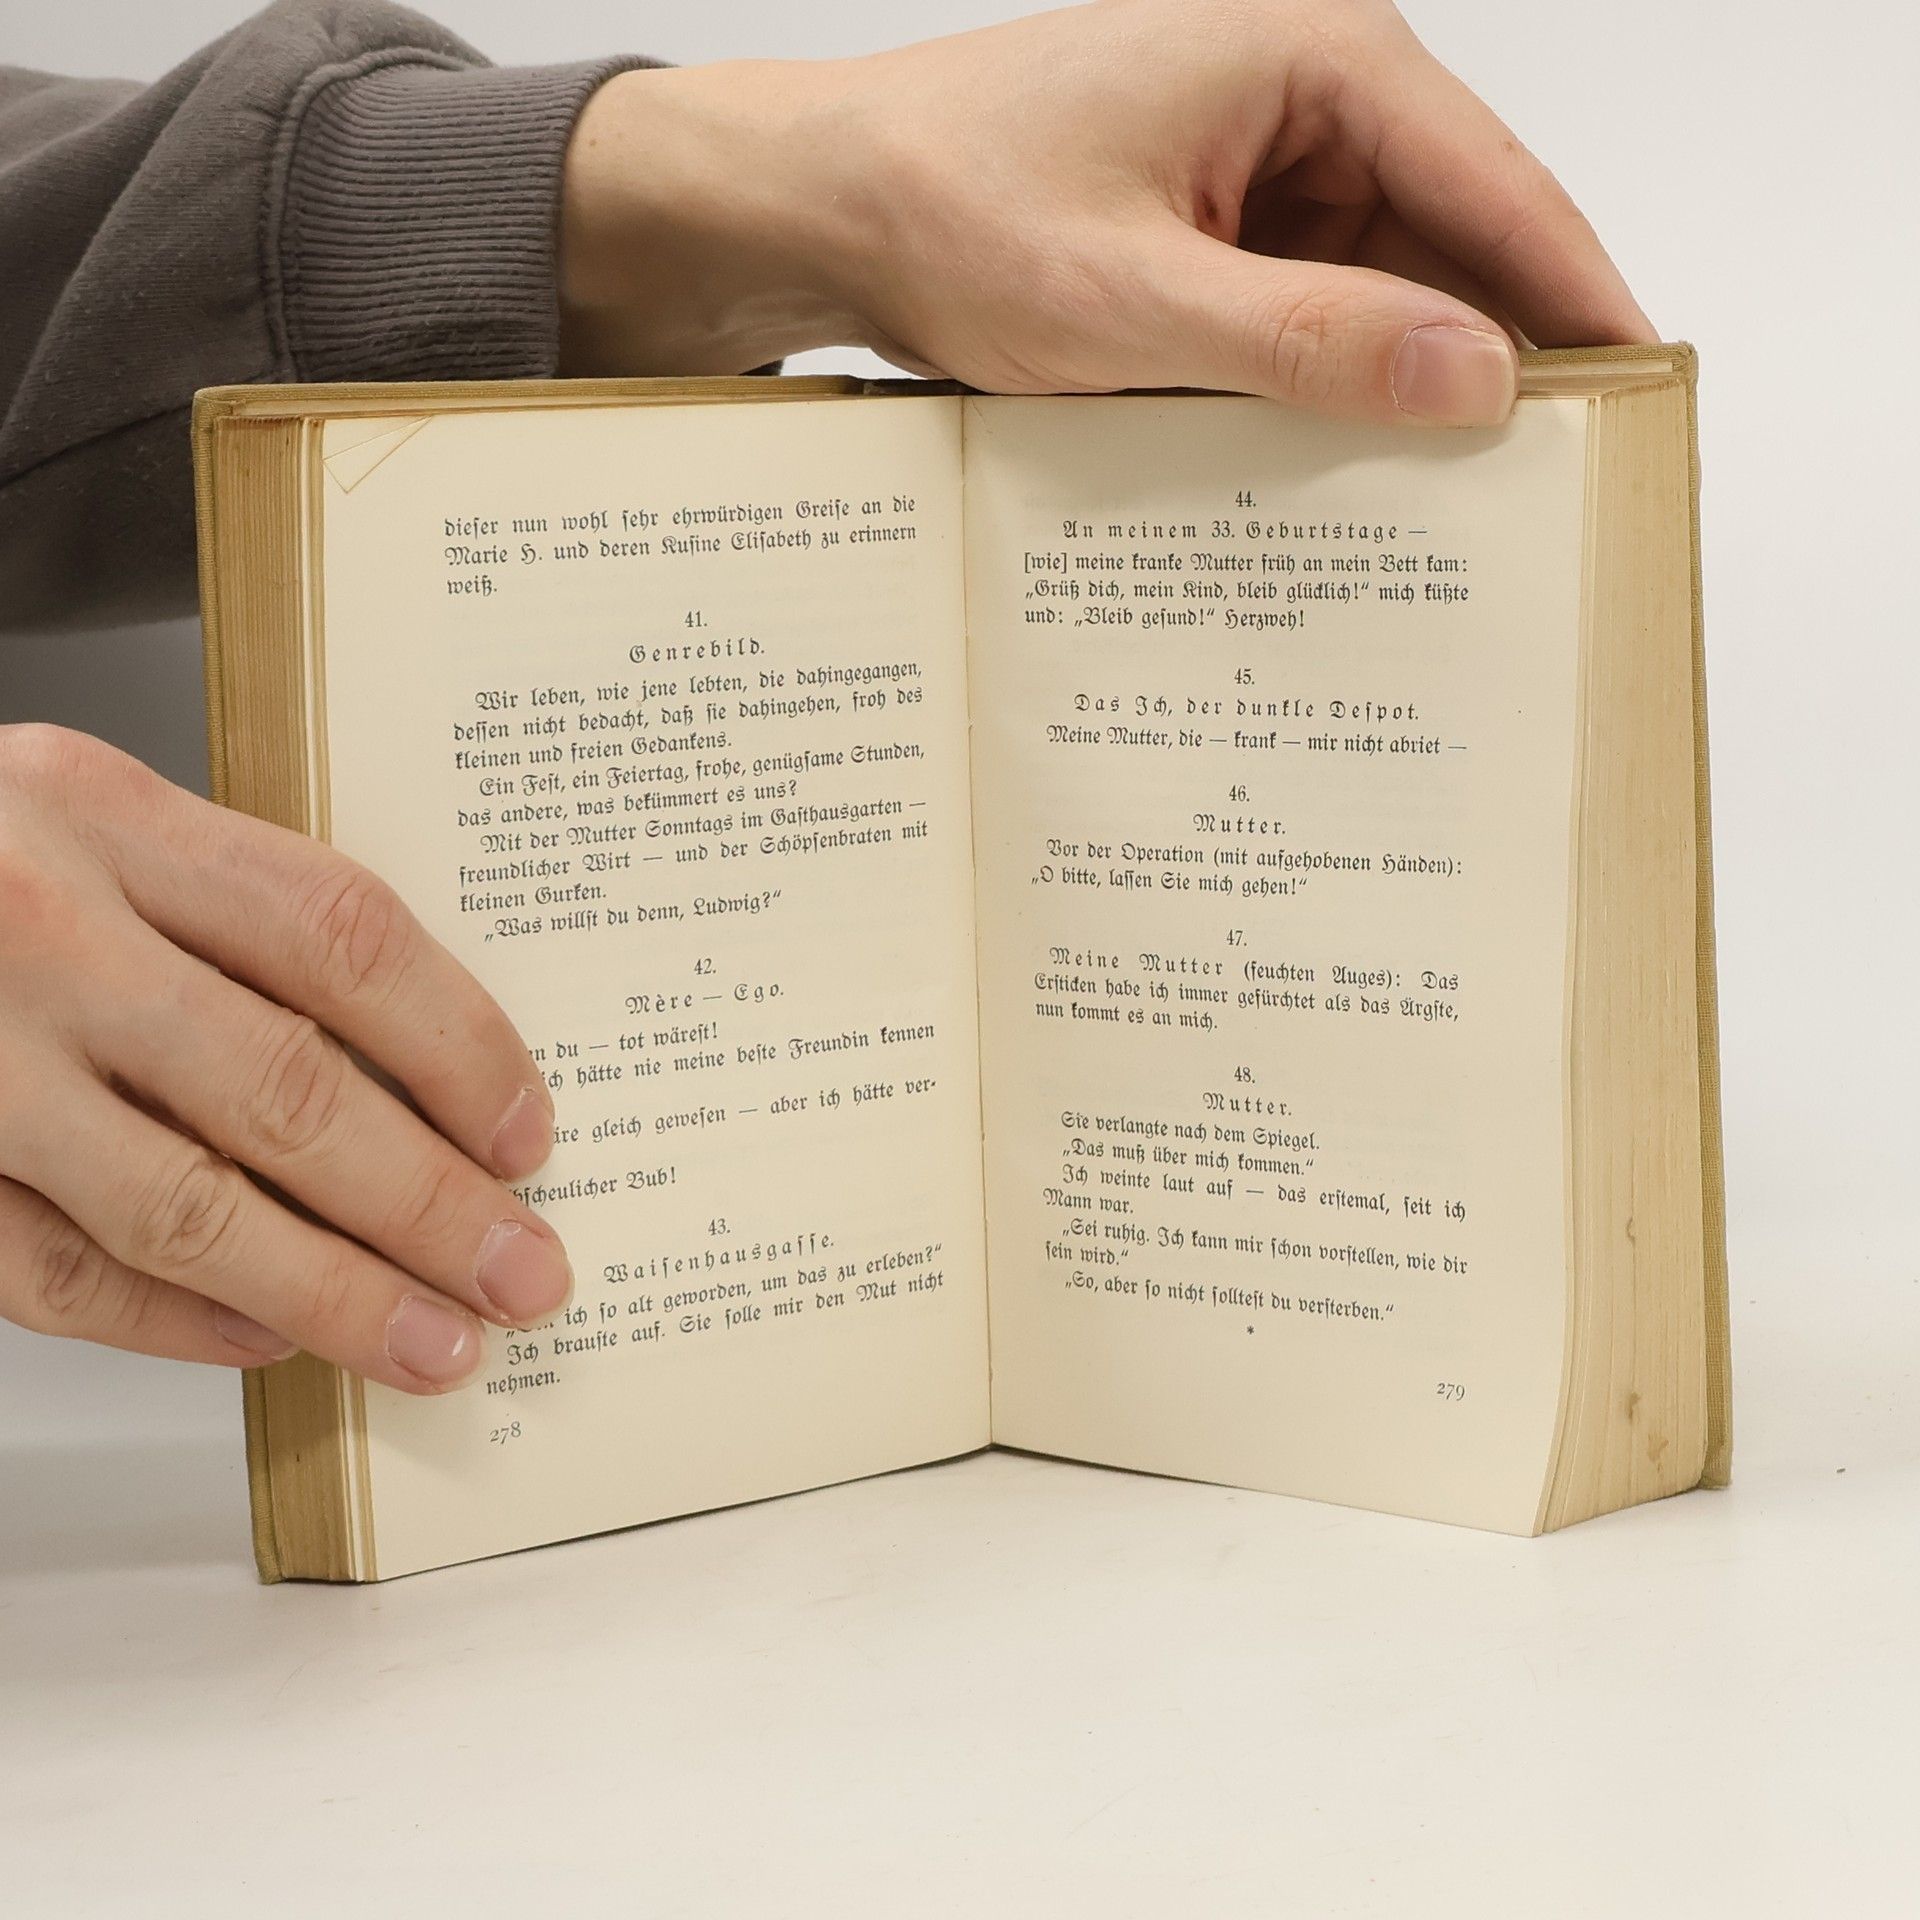 dieser nun wohl sehr ehrwürdigen Greise an die
Marie H. und deren Kusine Elisabeth zu erinnern
weiß.
41.
Genrebild.
Wir leben, wie jene lebten, die dahingegangen,
dessen nicht bedacht, daß sie dahingehen, froh des
kleinen und freien Gedankens.
Ein Fest, ein Feiertag, frohe, genügsame Stunden,
das andere, was bekümmert es uns?
Mit der Mutter Sonntags im Gasthausgarten —
freundlicher Wirt — und der Schöpsenbraten mit
kleinen Gurken.
„Was willst du denn, Ludwig?“
42.
Mère — Ego.
du — tot wärest!
hätte nie meine beste Freundin kennen
gleich gewesen — aber ich hätte ver-
Bub!
43.
Waisenhausgasse.
ich so alt geworden, um das zu erleben?“
Ich brauste auf. Sie solle mir den Mut nicht
nehmen.
278
44.
An meinem 33. Geburtstage —
[wie] meine kranke Mutter früh an mein Bett kam:
„Grüß dich, mein Kind, bleib glücklich!“ mich küßte
und: „Bleib gesund!“ Herzweh!
45.
Das Ich, der dunkle Despot.
Meine Mutter, die — krank — mir nicht abriet —
46.
Mutter.
Vor der Operation (mit aufgehobenen Händen):
„O bitte, lassen Sie mich gehen!“
47.
Meine Mutter (feuchten Auges): Das
Ersticken habe ich immer gefürchtet als das Ärgste,
nun kommt es an mich.
48.
Mutter.
Sie verlangte nach dem Spiegel.
„Das muß über mich kommen.“
Ich weinte laut auf — das erstemal, seit ich
Mann war.
„Sei ruhig. Ich kann mir schon vorstellen, wie dir
sein wird.“
„So, aber so nicht solltest du versterben.“
*
279